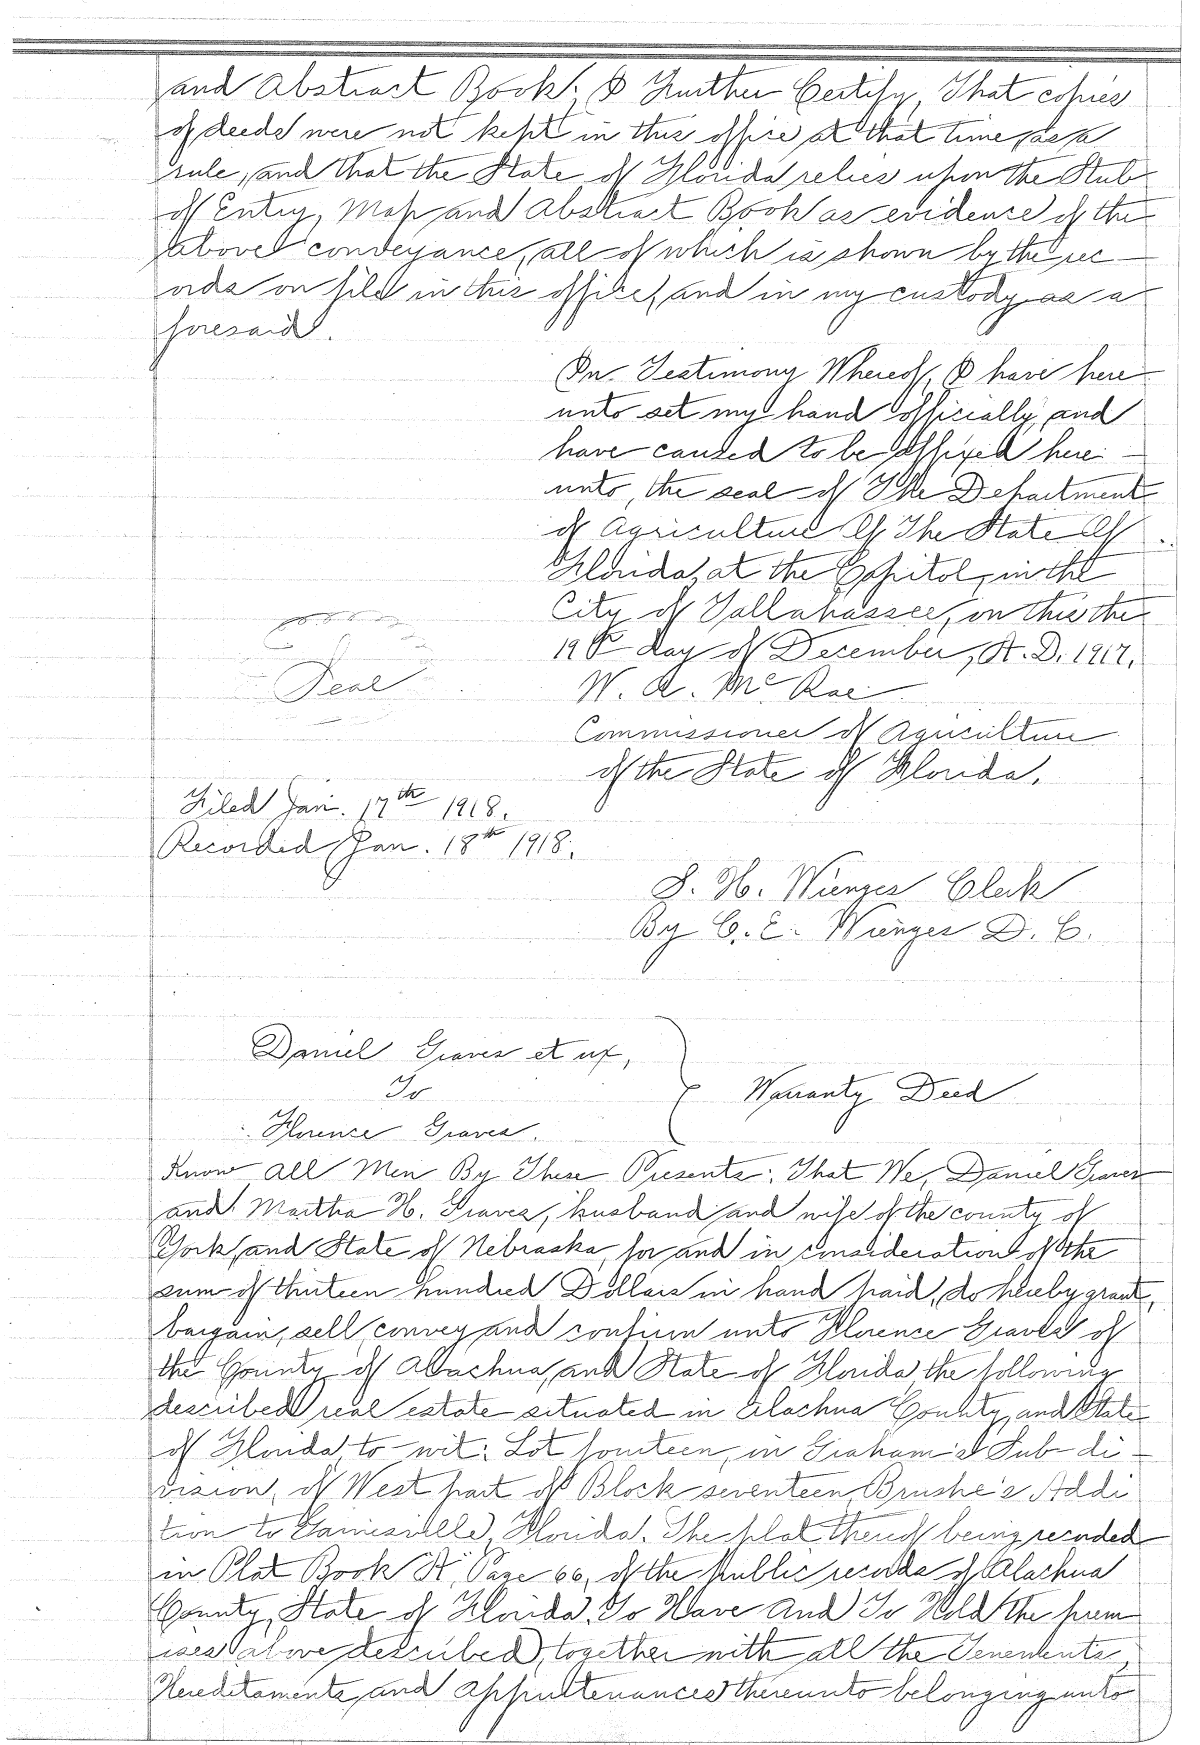 and Abstract Book; I Further Certify, That copies
of deeds were not kept in this office at that time, as a
rule, and that the State of Florida relies upon the Stub
of Entry, Map and Abstract Book as evidence of the
above conveyance, all of which is shown by the rec-
ords on file in this office, and in my custody as a
foresaid.
In Testimony Whereof, I have here
unto set my hand officially, and
have caused to be affixed here-
unto, the seal of The Department
of Agriculture Of The State Of
Florida, at the Capitol, in the
City of Tallahassee, on this the
19th day of December, A.D. 1917.
Seal
W. A. McRae
Commissioner of Agriculture
of the State of Florida.
Filed Jan. 17th 1918.
Recorded Jan. 18th 1918.
S. H. Wienges Clerk
By C. E. Wienges D. C.
Daniel Graves et ux,
To
Florence Graves.
Warranty Deed
Know All Men By These Presents: That We, Daniel Graves
and Martha H. Graves, husband and wife of the county of
York, and State of Nebraska, for and in consideration of the
sum of thirteen hundred Dollars in hand paid, do hereby grant,
bargain, sell, convey and confirm unto Florence Graves of
the County of Alachua, and State of Florida, the following
described real estate situated in Alachua County, and State
of Florida, to wit: Lot fourteen, in Graham's Sub-di-
vision, of West part of Block seventeen Brushe's Addi
tion to Gainesville, Florida. The plat thereof being recorded
in Plat Book "A", Page 66, of the public records of Alachua
County, State of Florida. To Have And To Hold the prem
ises above described, together with all the Tenements,
Hereditaments, and Appurtenances thereunto belonging unto